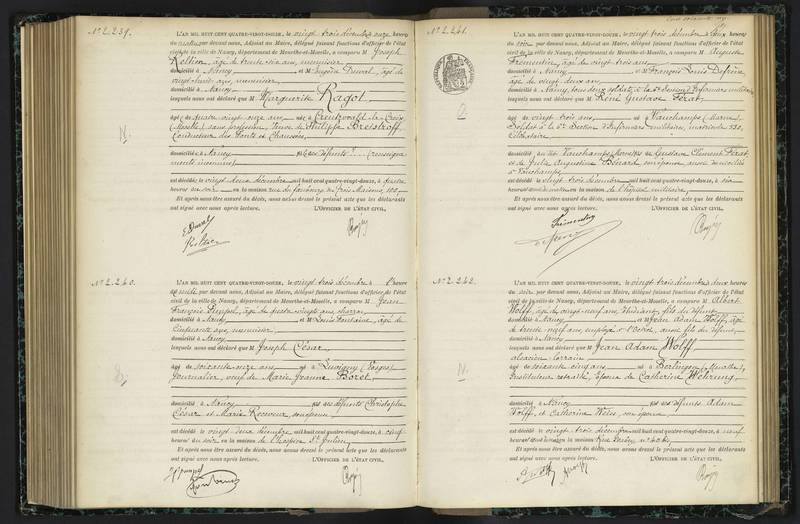 N° 2.239.
L'AN MIL HUIT CENT QUATRE-VINGT-DOUZE, le vingt trois décembre à onze heures
du matin, par devant nous, Adjoint au Maire, délégué faisant fonctions d'officier de l'état
civil de la ville de Nancy, département de Meurthe-et-Moselle, a comparu M. Joseph
âgé de trente six ans, menuisier
domicilié à Nancy et M. Eugène Duval, âgé de
vingt huit ans, menuisier
domicilié à Nancy
lesquels nous ont déclaré que M. Marguerite Ragot
N.
âgée de quatre vingt onze ans née à Creutzwald-la-Croix
(Moselle) sans profession, Veuve de Philippe Bretstroff
Conducteur des Ponts et Chaussées,
domicilié à Nancy
est décédée le vingt deux décembre mil huit cent quatre-vingt-douze, à quatre
heures du soir en la maison rue du faubourg des Trois Maisons, 100,
Et après nous être assuré du décès, nous avons dressé le présent acte que les déclarants
ont signé avec nous après lecture. L'OFFICIER DE L'ÉTAT CIVIL,
E. Duval
N° 2.240.
L'AN MIL HUIT CENT QUATRE-VINGT-DOUZE, le vingt trois décembre à heure
par devant nous, Adjoint au Maire, délégué faisant fonctions d'officier de l'état
civil de la ville de Nancy, département de Meurthe-et-Moselle, a comparu M. Jean
François âgé de quatre vingt ans,
domicilié à Nancy et M. Louis Fontaine, âgé de
Cinquante ans, menuisier
domicilié à Nancy
lesquels nous ont déclaré que M. Joseph César
âgé de soixante onze ans né à Luvigny (Vosges)
Journalier, veuf de Marie Jeanne Borel
domicilié à Nancy fils des défunts Christophe
César et Marie son épouse
est décédé le vingt deux décembre mil huit cent quatre-vingt-douze, à neuf
heures du soir en la maison de l'hospice St Julien,
Et après nous être assuré du décès, nous avons dressé le présent acte que les déclarants
ont signé avec nous après lecture. L'OFFICIER DE L'ÉTAT CIVIL,
N° 2.241.
L'AN MIL HUIT CENT QUATRE-VINGT-DOUZE, le vingt trois décembre à deux heures
du soir par devant nous, Adjoint au Maire, délégué faisant fonctions d'officier de l'état
civil de la ville de Nancy, département de Meurthe-et-Moselle, a comparu M. Auguste
Frementin, âgé de vingt trois ans
domicilié à Nancy et M. François Louis
âgé de vingt deux ans
domicilié à Nancy, tous deux soldats à la 6e Section d'infirmiers militaires
lesquels nous ont déclaré que M. René Gustave Férat
O.
âgé de vingt trois ans né à Vauchamps (Marne)
Soldat à la 6e Section d'Infirmiers militaires, matricule 530,
Célibataire
domicilié au dit Vauchamps, fils de Gustave Clément Férat
et de Julie Augustine Bénard son épouse, domiciliés
à Vauchamps
est décédé le vingt trois décembre mil huit cent quatre-vingt-douze, à six
heures du matin en la maison de l'hôpital militaire,
Et après nous être assuré du décès, nous avons dressé le présent acte que les déclarants
ont signé avec nous après lecture. L'OFFICIER DE L'ÉTAT CIVIL,
Frémentin
N° 2.242.
L'AN MIL HUIT CENT QUATRE-VINGT-DOUZE, le vingt trois décembre à deux heures
du soir, par devant nous, Adjoint au Maire, délégué faisant fonctions d'officier de l'état
civil de la ville de Nancy, département de Meurthe-et-Moselle, a comparu M. Albert
Wolff, âgé de vingt neuf ans, Étudiant, fils du défunt
domicilié à Nancy et M. Jean Adam Wolff, âgé
de trente neuf ans, employé à l'Octroi, aussi fils du défunt
domicilié à Nancy
lesquels nous ont déclaré que M. Jean Adam Wolff
alsacien lorrain
N.
âgé de soixante cinq ans né à Berlingen (Meurthe),
Instituteur retraité, Époux de Catherine Wehrung
domicilié à Nancy fils des défunts Adam
Wolff, et Catherine Weiss, son épouse
est décédé le vingt trois décembre mil huit cent quatre-vingt-douze, à neuf
heures du matin en la maison Rue
Et après nous être assuré du décès, nous avons dressé le présent acte que les déclarants
ont signé avec nous après lecture. L'OFFICIER DE L'ÉTAT CIVIL,
A. Wolff